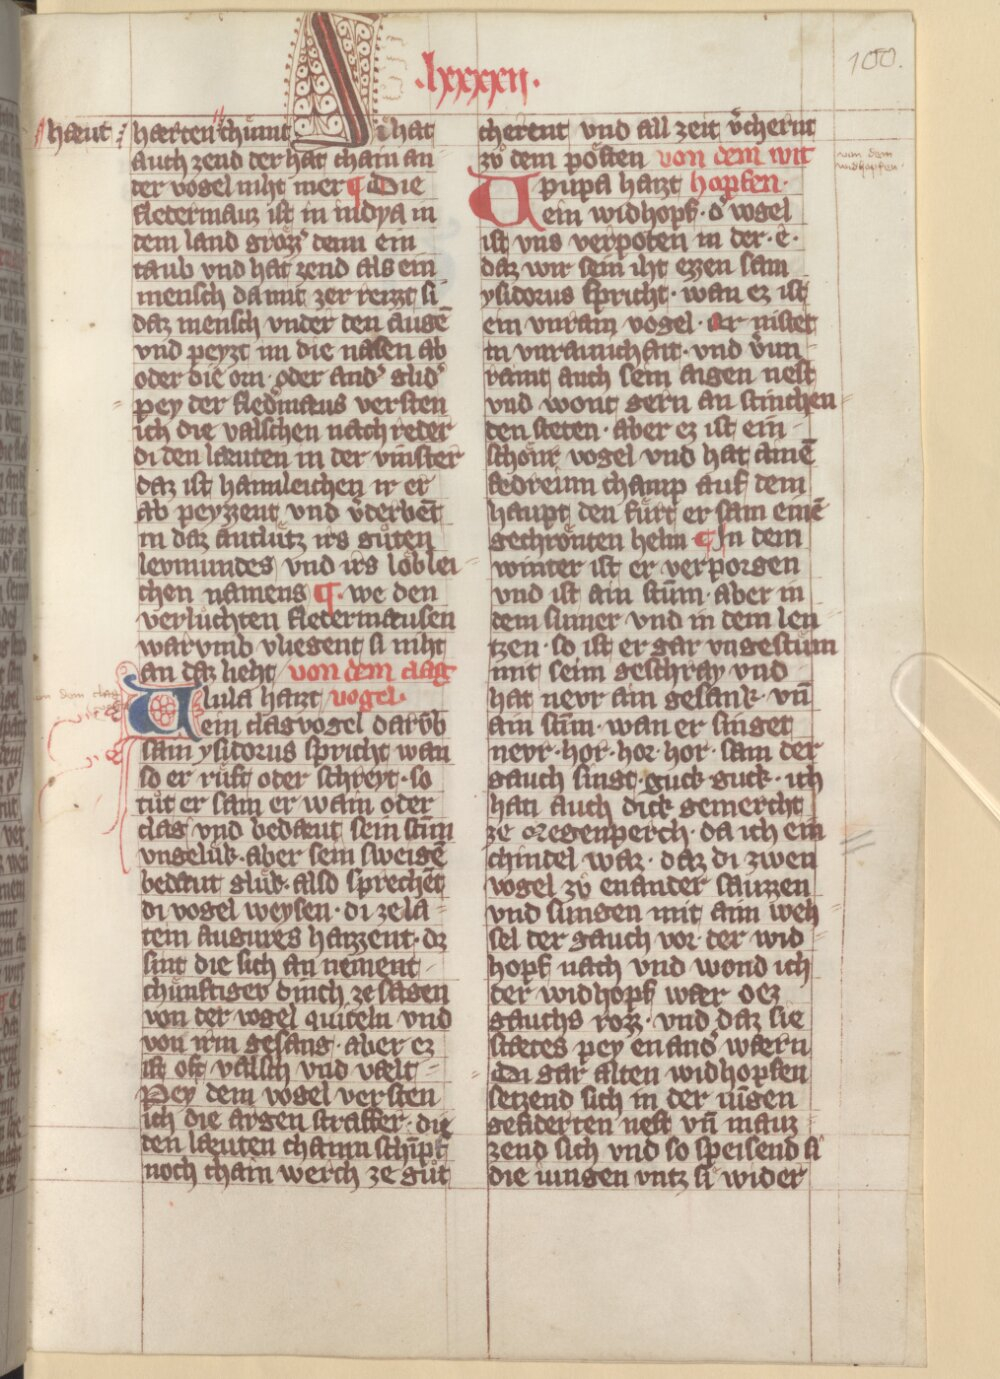 ·lxxxxii·
100.
haeut
haerten chumt Si hat
auch zend der hat chain an
der vogel niht mer ¶ Die
fledermauz ist in indya in
dem land grözz' denn ein
taub vnd hat zend als ein
mensch da mit zer reizzt si
daz mensch vnder den augē
vnd peyzt im die nasen ab
oder die orn · oder and' glid'
pey der fled'maus versten
ich die valschen nach reder
di den laeuten in der vinster
daz ist haimleichen ir er
ab peyzzent vnd v'derbēt
in daz antlütz irs gůten
levmundes vnd irs löblei
chen namens ¶ · we den
verlüchten fledermaeusen
warvmb vliegent si niht
an daz lieht von dem clag
vogel·
von dem clag
Vlula haizt
ein clagvogel darvb
sam ysidorus spricht wan
so er růft oder schreyt · so
tůt er sam er wain oder
clag vnd bedaeut sein stim
vngelük · aber sein sweigē
bedaeut glük · also sprechēt
di vogel weysen · di ze la
tein augures haizzent · dz
sint die sich an nement
chünftiger dinch ze sagen
von der vogel quiteln vnd
von irm gesang · aber ez
ist oft valsch vnd vaelt
Pey dem vogel versten
ich die argen straffer · die
den laeuten chainn schīpf
noch chain werch ze gůt
cherent vnd all zeit v'chernt
zů dem pösten von dem wit
hopfen·
von dem
widhopfen·
Vpupa haizt
ein widhopf · d' vogel
ist vns verpoten in der · e ·
daz wir sein iht ezzen sam
ysidorus spricht · wan ez ist
ein vnrain vogel · er nistet
in vnrainichait · vnd v'un
raint auch sein aigen nest
vnd wont gern an stinchen
den steten · aber ez ist ein
schöner vogel vnd hat ainē
fedreinn champ auf dem
haupt den fürt er sam einē
gechrönten helm ¶ In dem
winter ist er verporgen
vnd ist ain stūm · aber in
dem sumer vnd in dem len
tzen · so ist er gar vngestüm
mit seim geschray vnd
hat nevr ain gesank · vn̄
ain stim · wan er singet
nevr · hor · hor · hor · sam der
gauch singt · guck guck · ich
han auch dick gemercht
ze Regenperch · da ich ein
chindel waz · daz di zwen
vogel zů enander sauzzen
vnd sungen mit aim weh
sel der gauch vor der wid
hopf nach vnd wond ich
der widhopf waer dez
gauchs rozz · vnd daz sie
staetes pey enand' waern
Di gar alten widhopfen
setzend sich in der iungen
gefiderten nest vn̄ mauz
zend sich vnd so speisend si
die iungen vntz si wider